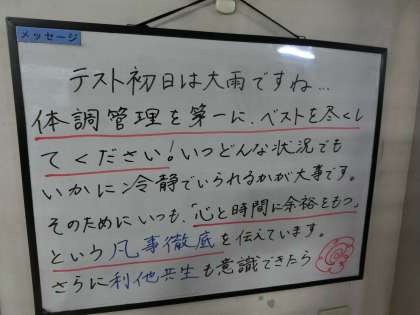 メッセージ
テスト初日は大雨ですね…
体調管理を第一に、ベストを尽くし
てください!いつどんな状況でも
いかに冷静でいられるかが大事です。
そのためにいつも、「心と時間に余裕をもつ」
という凡事徹底を伝えています。
さらに利他共生も意識できたら